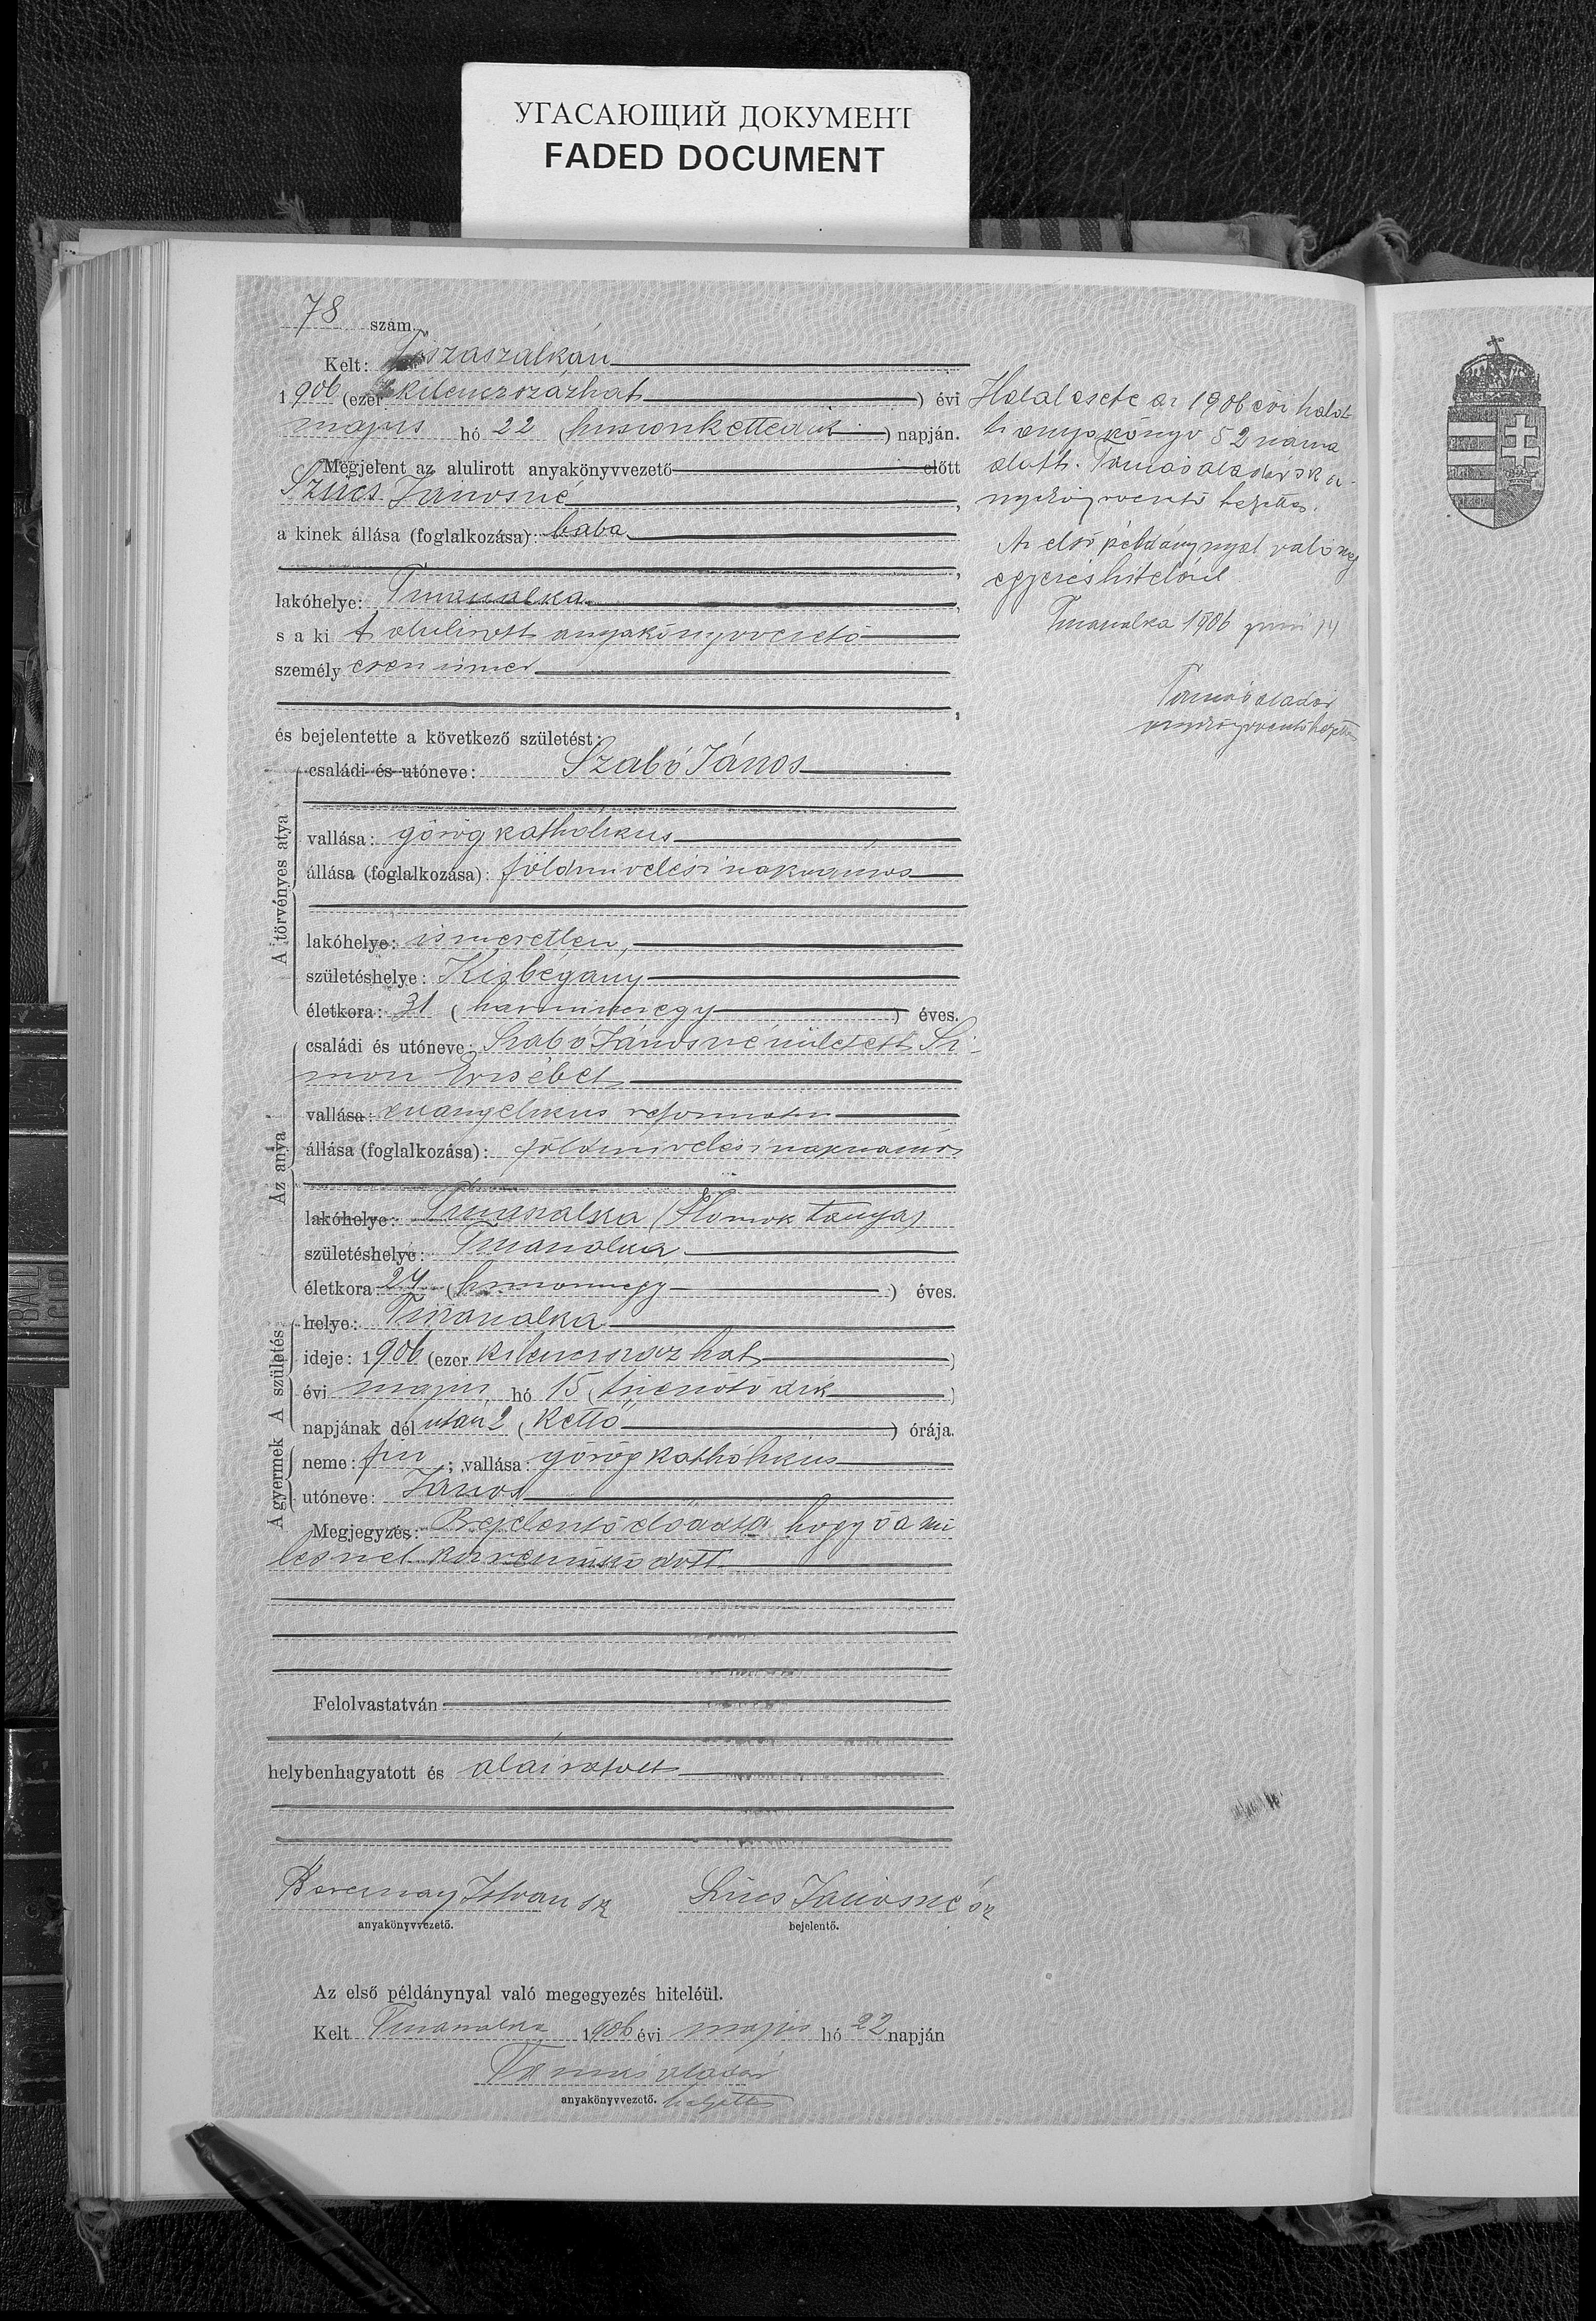 УГАСАЮЩИЙ ДОКУМЕНТ
FADED DOCUMENT
78 szám.
Kelt: Tiszaszalkán
1906 (ezer kilenczszázhat) évi
május hó 22 (huszonkettedik) napján.
Megjelent az alulirott anyakönyvvezető előtt
Szücs Jánosné,
a kinek állása (foglalkozása): bába
,
lakóhelye: Tiszaszalka,
s a ki t alulirott anyakönyvvezető
személyesen ismer
,
és bejelentette a következő születést:
A törvényes atya
családi és utóneve: Szabó János
vallása: görög katholikus
állása (foglalkozása): földmivelési napszámos
lakóhelye: ismeretlen,
születéshelye: Kisbégány
életkora: 31 (harminczegy) éves.
Az anya
családi és utóneve: Szabó Jánosné született Si-
mon Erzsébet
vallása: evangelikus református
állása (foglalkozása): földmivelési napszámos
lakóhelye: Tiszaszalka (Homok tanya)
születéshelye: Tiszaszalka
életkora: 24 (huszonnégy) éves.
A születés
helye: Tiszaszalka
ideje: 1906 (ezer kilenczszázhat)
évi május hó 15 (tizenötödik)
napjának dél után 2 (kettő) órája.
A gyermek
neme: fiu; vallása: görög katholikus
utóneve: János
Megjegyzés: Bejelentő előadta, hogy ő a szü
lésnél közremüködött
Felolvastatván
helybenhagyatott és aláiratott
Bereznay István sk Szücs Jánosné sk
anyakönyvvezető. bejelentő.
Az első példánynyal való megegyezés hiteléül.
Kelt Tiszaszalka 1906 évi május hó 22 napján
Tamás Aladár
anyakönyvvezető. helyettes
Halálesete az 1906 évi halot-
ti anyakönyv 52 száma
alatt. Tamás Aladár sk a-
nyakönyvvezető helyettes.
Az első példánynyal való meg
egyezés hiteléül
Tiszaszalka 1906 juni 14
Tamás Aladár
anyakönyvvezető helyettes